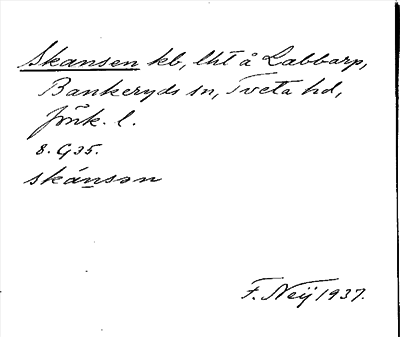 Skansen kb, lht å Labbarp,
Bankeryds sn, Tveta hd,
Jönk. l.
8. G35.
skánsən
F. Neij 1937.